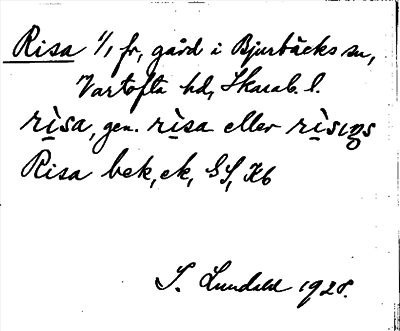 Risa 1/1 fr, gård i Bjurbäcks sn,
Vartofta hd, Skarab. l.
rìsa, gen. rìsa eller rìsıŋs
Risa bek, ek, GS, Kb
S. Lundahl 1928.